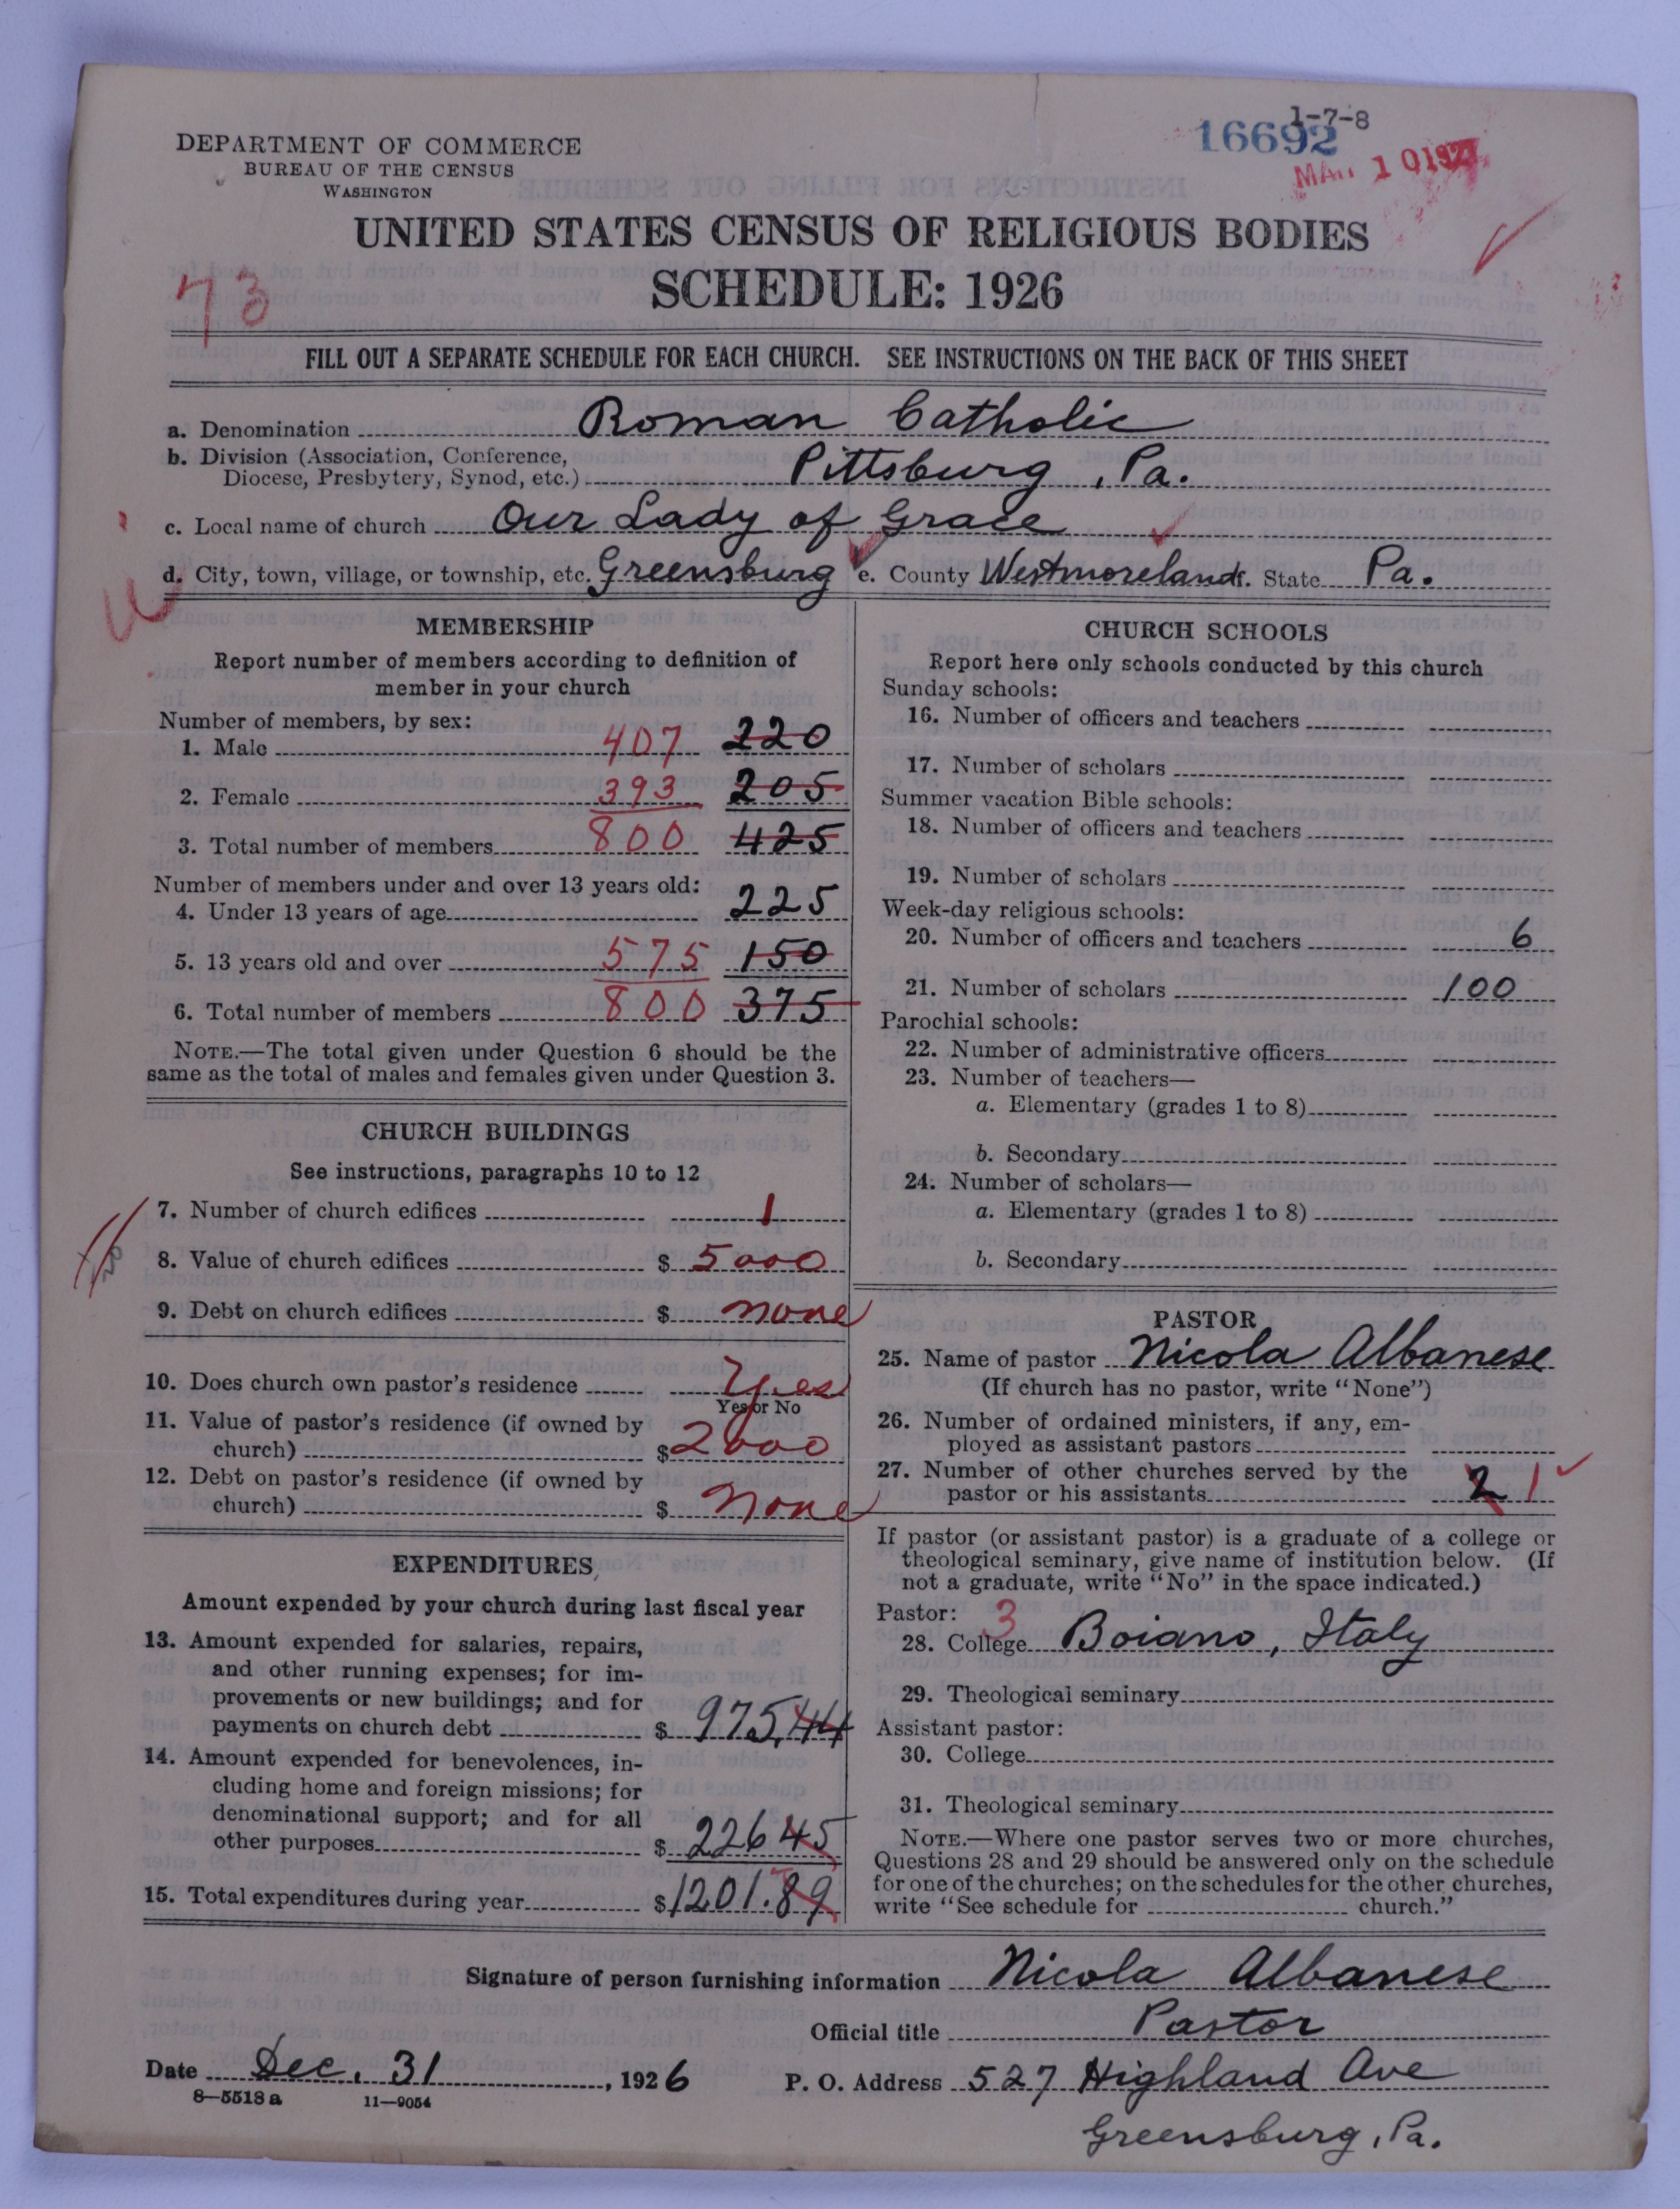 1-7-8
16692
MAR 10 1927
DEPARTMENT OF COMMERCE
BUREAU OF THE CENSUS
WASHINGTON
UNITED STATES CENSUS OF RELIGIOUS BODIES
SCHEDULE: 1926
73
FILL OUT A SEPARATE SCHEDULE FOR EACH CHURCH. SEE INSTRUCTIONS ON THE BACK OF THIS SHEET
a. Denomination Roman Catholic
b. Division (Association, Conference,
Diocese, Presbytery, Synod, etc.) Pittsburg, Pa.
c. Local name of church Our Lady of Grace
d. City, town, village, or township, etc. Greensburg e. County Westmoreland f. State Pa.
MEMBERSHIP
Report number of members according to definition of
member in your church
Number of members, by sex:
1. Male 407 220
2. Female 393 205
3. Total number of members 800 425
Number of members under and over 13 years old:
4. Under 13 years of age 225
5. 13 years old and over 575 150
6. Total number of members 800 375
NOTE.—The total given under Question 6 should be the
same as the total of males and females given under Question 3.
CHURCH BUILDINGS
See instructions, paragraphs 10 to 12
7. Number of church edifices 1
8. Value of church edifices $ 5000
9. Debt on church edifices $ none
10. Does church own pastor's residence Yes
Yes or No
11. Value of pastor's residence (if owned by
church) $ 2000
12. Debt on pastor's residence (if owned by
church) $ none
EXPENDITURES
Amount expended by your church during last fiscal year
13. Amount expended for salaries, repairs,
and other running expenses; for im-
provements or new buildings; and for
payments on church debt $ 975.44
14. Amount expended for benevolences, in-
cluding home and foreign missions; for
denominational support; and for all
other purposes $ 226 45
15. Total expenditures during year $ 1201.89
CHURCH SCHOOLS
Report here only schools conducted by this church
Sunday schools:
16. Number of officers and teachers
17. Number of scholars
Summer vacation Bible schools:
18. Number of officers and teachers
19. Number of scholars
Week-day religious schools:
20. Number of officers and teachers 6
21. Number of scholars 100
Parochial schools:
22. Number of administrative officers
23. Number of teachers—
a. Elementary (grades 1 to 8)
b. Secondary
24. Number of scholars—
a. Elementary (grades 1 to 8)
b. Secondary
PASTOR
25. Name of pastor Nicola Albanese
(If church has no pastor, write "None")
26. Number of ordained ministers, if any, em-
ployed as assistant pastors
27. Number of other churches served by the
pastor or his assistants 2 1
If pastor (or assistant pastor) is a graduate of a college or
theological seminary, give name of institution below. (If
not a graduate, write "No" in the space indicated.)
Pastor: 3
28. College Boiano, Italy
29. Theological seminary
Assistant pastor:
30. College
31. Theological seminary
NOTE.—Where one pastor serves two or more churches,
Questions 28 and 29 should be answered only on the schedule
for one of the churches; on the schedules for the other churches,
write "See schedule for church."
Signature of person furnishing information Nicola Albanese
Official title Pastor
Date Dec. 31, 1926 P. O. Address 527 Highland Ave
8—5518 a 11—9054
Greensburg, Pa.